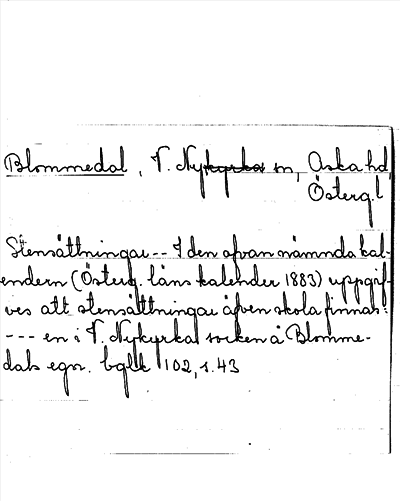 Blommedal, V. Nykyrka sn, Aska hd,
Österg.l
Stensättningar -- I den ofvan nämnda kal-
endern (Österg. läns kalender 1883) uppgif-
ves att stensättningar äfven skola finnas:
--- en i V. Nykyrka socken å Blomme-
dals egor.  102, s. 43